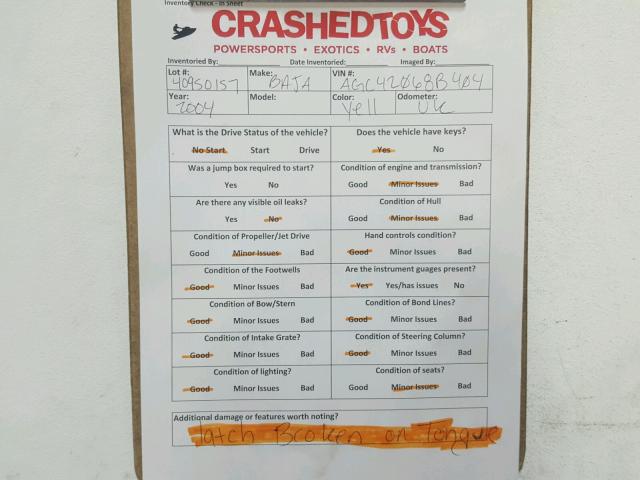 Inventory Check - In Sheet
CRASHEDTOYS
POWERSPORTS • EXOTICS • RVs • BOATS
Inventoried By: Date Inventoried: Imaged By:
Lot #: 40950157 Make: BAJA VIN #: AGC42068B404
Year: 2004 Model: Color: Yell Odometer: UK
What is the Drive Status of the vehicle? Does the vehicle have keys?
No Start Start Drive Yes No
Was a jump box required to start? Condition of engine and transmission?
Yes No Good Minor Issues Bad
Are there any visible oil leaks? Condition of Hull
Yes No Good Minor Issues Bad
Condition of Propeller/Jet Drive Hand controls condition?
Good Minor Issues Bad Good Minor Issues Bad
Condition of the Footwells Are the instrument guages present?
Good Minor Issues Bad Yes Yes/has issues No
Condition of Bow/Stern Condition of Bond Lines?
Good Minor Issues Bad Good Minor Issues Bad
Condition of Intake Grate? Condition of Steering Column?
Good Minor Issues Bad Good Minor Issues Bad
Condition of lighting? Condition of seats?
Good Minor Issues Bad Good Minor Issues Bad
Additional damage or features worth noting?
latch Broken on Tongue